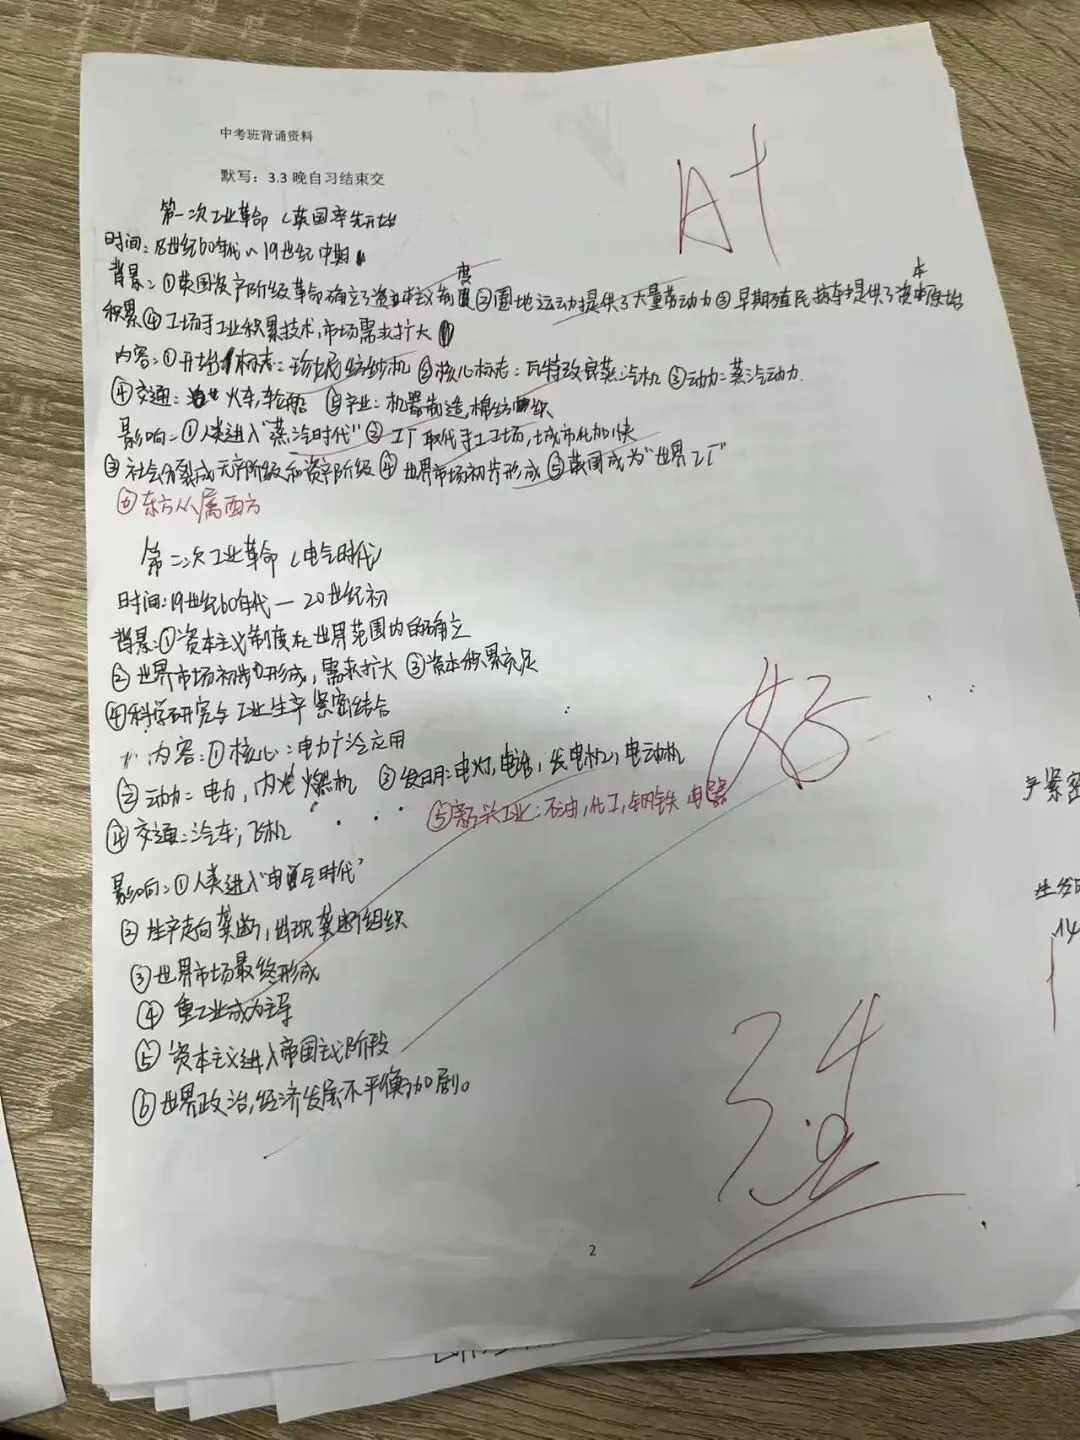 中考班背诵资料
A+
默写：3.3 晚自习结束交
第一次工业革命（英国率先开始
时间：18世纪60年代～19世纪中期
背景：①英国资产阶级革命确立了资本主义制度②圈地运动提供了大量劳动力③早期殖民掠夺提供了资本原始
积累④工场手工业积累技术，市场需求扩大
内容：①开始标志：珍妮纺纱机②核心标志：瓦特改良蒸汽机③动力：蒸汽动力.
④交通：火车，轮船 ⑤产业：机器制造棉纺织
影响：①人类进入“蒸汽时代”②工厂取代手工工场，城市化加快
③社会分裂成无产阶级和资产阶级④世界市场初步形成⑤英国成为“世界工厂”
⑥东方从属西方
第二次工业革命（电气时代）
时间：19世纪60年代—20世纪初
背景：①资本主义制度在世界范围内的确立
②世界市场初步形成，需求扩大③资本积累充足
④科学研究与工业生产紧密结合
内容：①核心：电力广泛应用
②动力：电力，内燃机 ③发明：电灯，电话，发电机，电动机
⑤新兴工业：石油，化工，钢铁 电器
④交通：汽车，飞机
好
影响：①人类进入“电气时代”
②生产走向垄断，出现垄断组织
③世界市场最终形成
④重工业成为主导
⑤资本主义进入帝国主义阶段
⑥世界政治，经济发展不平衡加剧。
2
产紧密
14